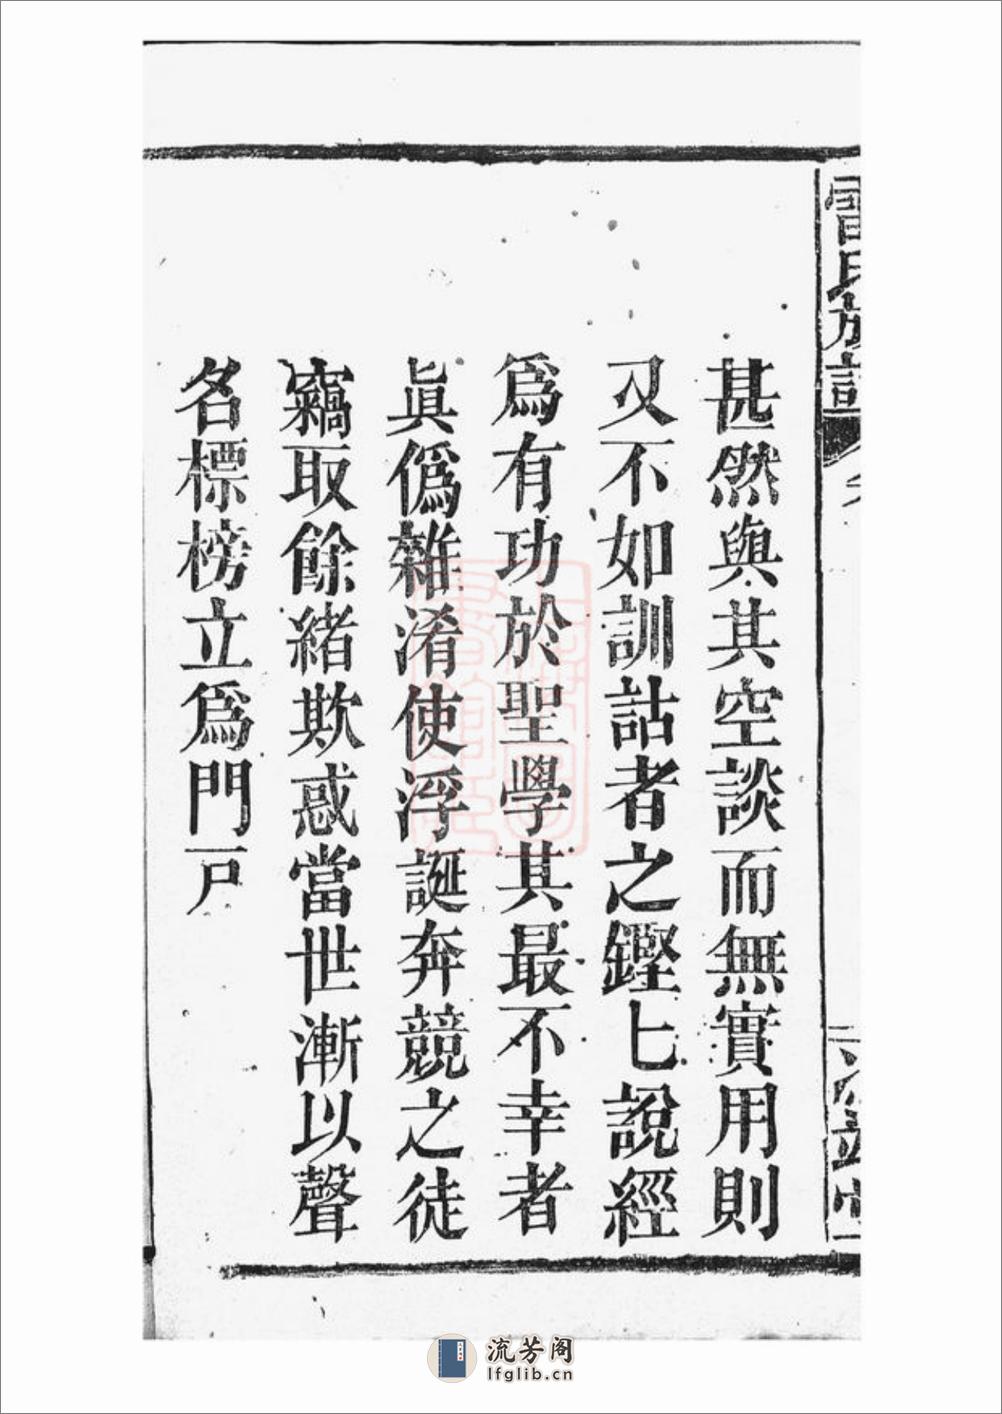 雷氏族譜
甚然與其空談而無實用則
又不如訓詁者之鏗七說經
爲有功於聖學其最不幸者
眞僞雜淆使浮誕奔競之徒
竊取餘緒欺惑當世漸以聲
名標榜立爲門戸
流芳阁
lfglib.cn